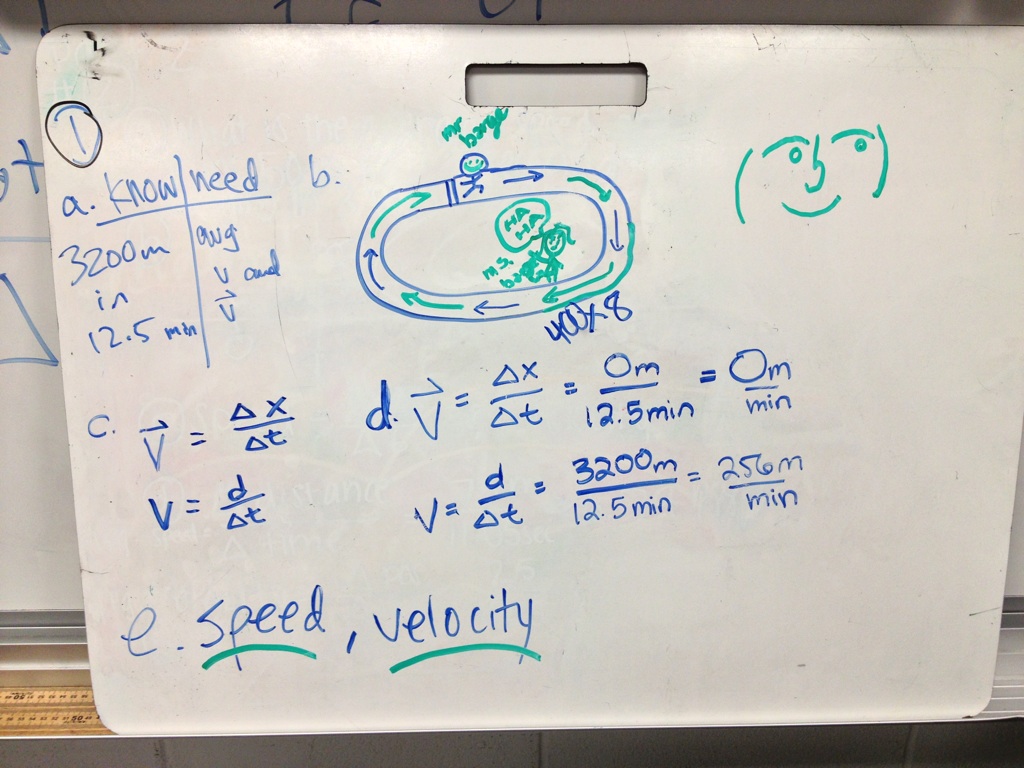 ①
a. know | need
3200m
in
12.5 min
avg
v and
v⃗
b.
mr
barge
HA
HA
m.s.
400×8
c. V⃗ = Δx/Δt
V = d/Δt
d. V⃗ = Δx/Δt = 0m/12.5min = 0m/min
V = d/Δt = 3200m/12.5min = 256m/min
e. speed, velocity